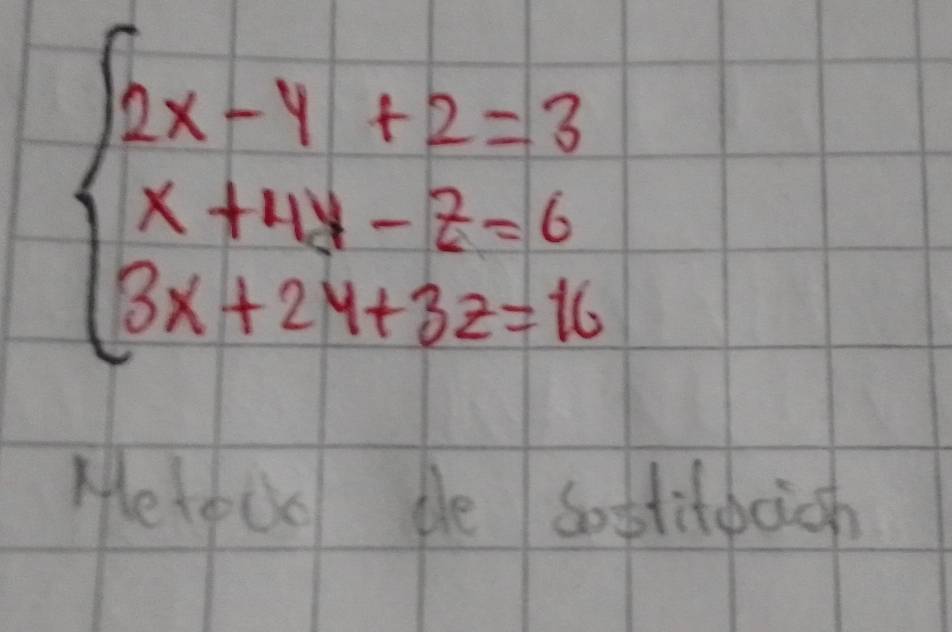 2x - y + 2 = 3
x + 4y - z = 6
3x + 2y + 3z = 16
Metodo de Sostitocion